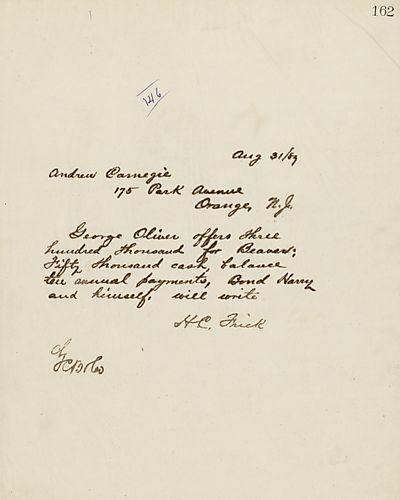 162
146
Aug 31/89
Andrew Carnegie
175 Park Avenue
Orange, N.J.
George Oliver offers three
hundred thousand for Beaver;
Fifty thousand cash, balance
ten annual payments, Bond Harry
and himself. will write
H.C. Frick